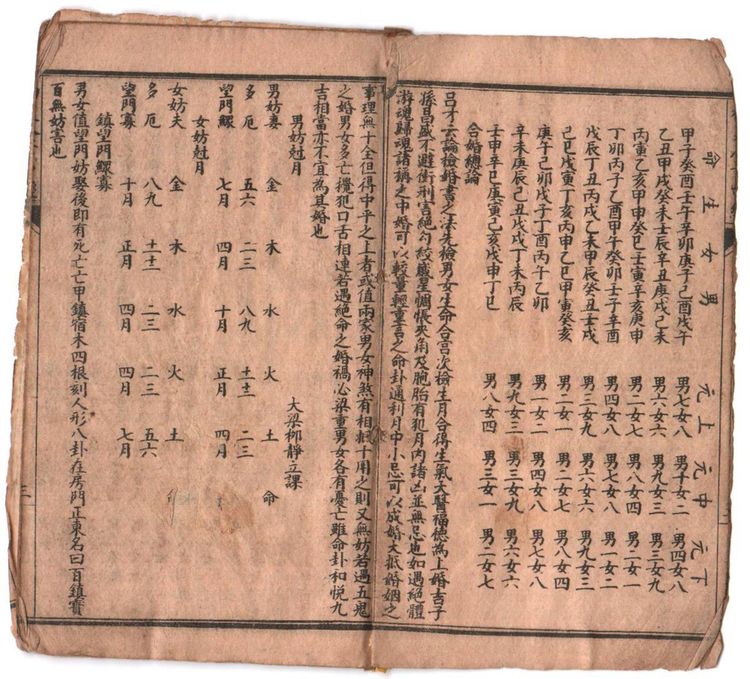 命生女男 元上 元中 元下
甲子癸酉壬午辛卯庚子己酉戊午 男七女八 女二 男四女八
乙丑甲戌癸未壬辰辛丑庚戌己未 男六女六 男九女三 男三女九
丙寅乙亥甲申癸巳壬寅辛亥庚申 男二女七 男八女四 男二女一
丁卯丙子乙酉甲午癸卯壬子辛酉 男四女八 男七女八 男一女二
戊辰丁丑丙戌乙未甲辰癸丑壬戌 男三女九 男六女六 男九女三
己巳戊寅丁亥丙申乙巳甲寅癸亥 男二女一 男二女七 男八女四
庚午己卯戊子丁酉丙午乙卯 男一女二 男四女八 男七女八
辛未庚辰己丑戊戌丁未丙辰 男九女三 男三女九 男六女六
壬申辛巳庚寅己亥戊申丁巳 男八女四 男三女一 男二女七
合婚總論
呂才云論檢婚書之法先檢男女生命合宮次檢生月合得生氣天醫福德為上婚吉子
孫昌盛不避衝刑害絕勾絞歲星惆悵夾角及胞胎有犯月內諸凶並無忌也如遇絕體
游魂歸魂諸稱之中婚可以較量輕重言之命卦通利月中小忌可以成婚大抵婚姻之
事理無十全但得中平之上者或值兩家男女神煞有相粧十用之則又無妨若遇五鬼
之婚男女多亡攪犯口舌相連若遇絕命之婚禍心梁重男女各有憂亡雖命卦和悅九
吉相當亦不宜為其婚也
大梁柳靜立課
男妨尅月
男妨妻 金 木 水 火 土 命
多厄 五六 二三 八九 十二十一 二三
望門鰥 七月 四月 十月 正月 四月
女妨尅月
女妨夫 金 木 水 火 土
多厄 八九 十二十一 二三 二三 五六
望門寡 十月 正月 四月 四月 七月
鎮望門鰥寡
男女值望門妨娶後即有死亡亡甲鎮宿木四根刻人形八卦在房門正東名曰百鎮實
百無妨害也
三